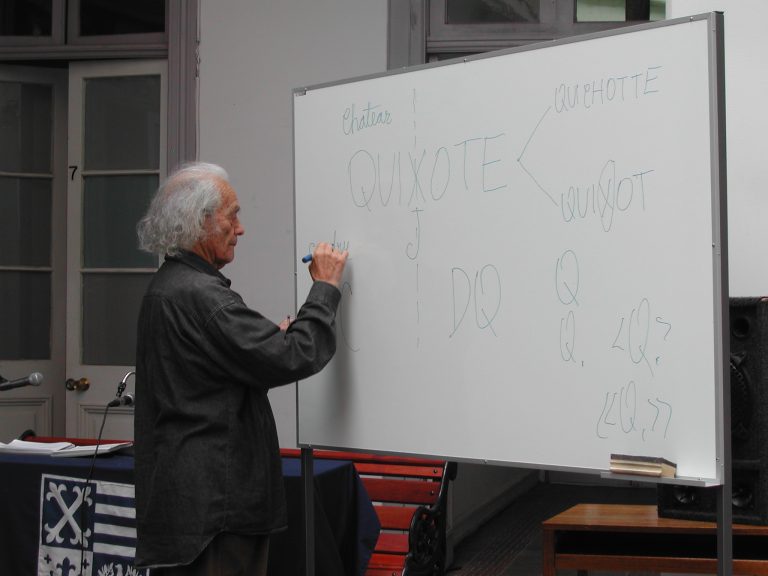 7
Chatear
QUIXOTE
QUICHOTTE
QUIXOT
J
C
DQ
Q
Q,
<Q,>
<<Q,>>